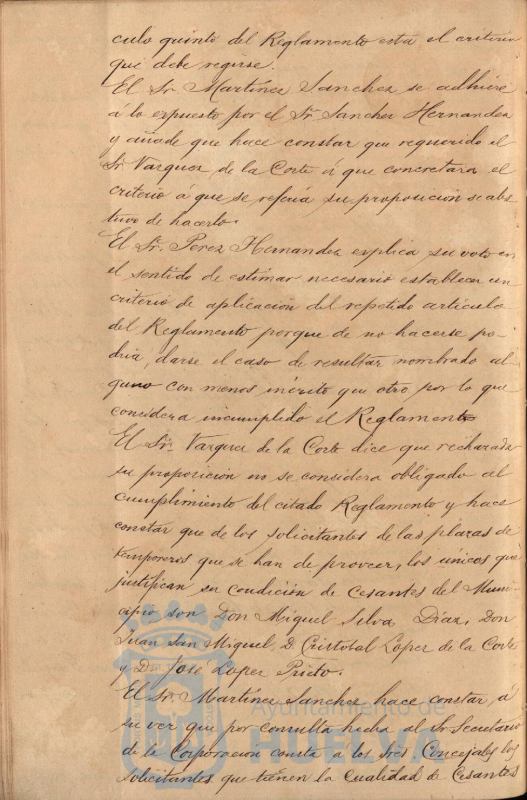 culo quinto del Reglamento está el criterio
que debe regirse.
El Sr. Martínez Sanchez se adhiere
á lo expuesto por el Sr. Sanchez Hernandez
y añade que hace constar que requerido el
Sr. Vazquez de la Corte á que concretara el
criterio á que se referia su proposicion se abs
tuvo de hacerlo.
El Sr. Perez Hernandez explica su voto en
el sentido de estimar necesario establecer un
criterio de aplicacion del repetido artículo
del Reglamento porque de no hacerse po-
dria, darse el caso de resultar nombrado al-
guno con menos mérito que otro por lo que
considera incumplido el Reglamento
El Sr. Vazquez de la Corte dice que rechazada
su proposicion no se considera obligado al
cumplimiento del citado Reglamento y hace
constar que de los solicitantes de las plazas de
temporeros que se han de proveer, los únicos que
justifican su condición de Cesantes del Muni-
cipio son Don Miguel Silva Diaz, Don
Juan San Miguel, D. Cristobal Lopez de la Corte
y Dn. José Lopez Prieto.
El Sr. Martínez Sanchez hace constar, á
su ver que por consulta hecha al Sr. Secretario
de la Corporacion consta a los Sres Concejales los
solicitantes que tienen la cualidad de Cesantes
Ayuntamiento de
HUELVA